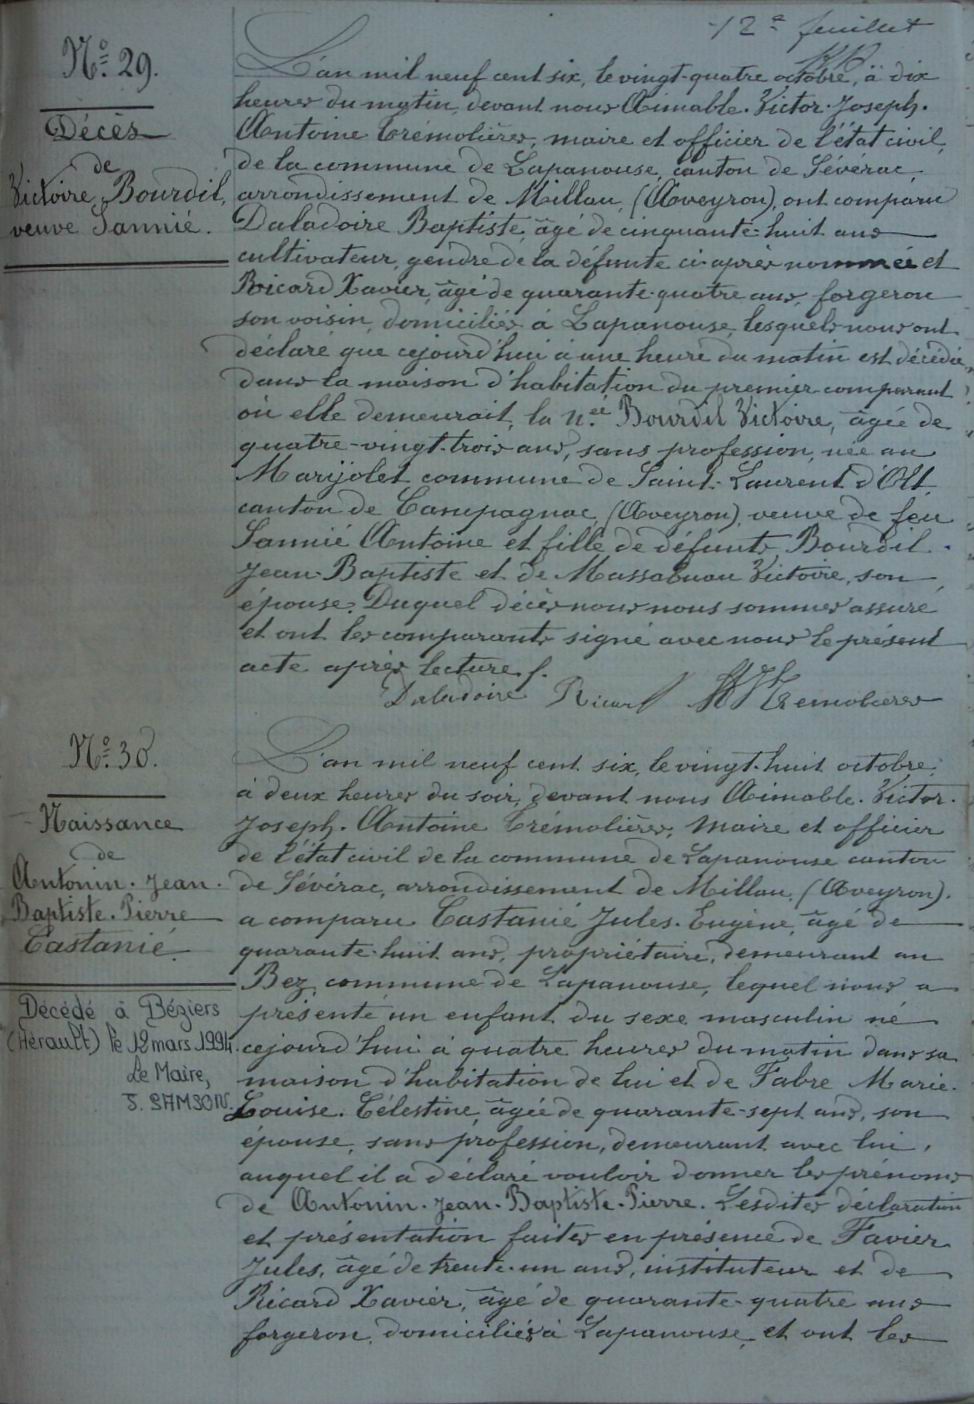 12e feuillet
No. 29.
Décès
de
Victoire Bourdil,
veuve Sannié.
L'an mil neuf cent six, le vingt-quatre octobre, à dix
heures du matin, devant nous Aimable. Victor. Joseph.
Antoine Trémolières, maire et officier de l'état civil,
de la commune de Lapanouse, canton de Sévérac,
arrondissement de Millau, (Aveyron), ont comparu
Daladoire Baptiste, âgé de cinquante-huit ans
cultivateur, gendre de la défunte ci-après nommée et
Ricard Xavier, âgé de quarante-quatre ans, forgeron
son voisin, domiciliés à Lapanouse, lesquels nous ont
déclaré que cejourd'hui à une heure du matin est décédée
dans la maison d'habitation du premier comparant
où elle demeurait, la née Bourdil Victoire, âgée de
quatre-vingt-trois ans, sans profession, née au
Marijolet commune de Saint-Laurent d'Olt,
canton de Campagnac, (Aveyron), veuve de feu
Sannié Antoine et fille de défunts Bourdil
Jean-Baptiste et de Massabuau Victoire, son
épouse. Duquel décès nous nous sommes assuré
et ont les comparants signé avec nous le présent
acte après lecture.
Daladoire Ricard Tremolieres
No. 30.
Naissance
de
Antonin. Jean.
Baptiste. Pierre
Castanié.
Décédé à Béziers
(Hérault) le 12 mars 1994
Le Maire,
S. SAMSON.
L'an mil neuf cent six, le vingt-huit octobre,
à deux heures du soir, devant nous Aimable. Victor.
Joseph. Antoine Trémolières, Maire et officier
de l'état civil de la commune de Lapanouse canton
de Sévérac, arrondissement de Millau, (Aveyron),
a comparu Castanié Jules. Eugène, âgé de
quarante-huit ans, propriétaire, demeurant au
Bez, commune de Lapanouse, lequel nous a
présenté un enfant du sexe masculin né
cejourd'hui à quatre heures du matin dans sa
maison d'habitation de lui et de Fabre Marie.
Louise. Célestine, âgée de quarante-sept ans, son
épouse, sans profession, demeurant avec lui,
auquel il a déclaré vouloir donner les prénoms
de Antonin. Jean. Baptiste. Pierre. Lesdites déclaration
et présentation faites en présence de Favier
Jules, âgé de trente-un ans, instituteur et de
Ricard Xavier, âgé de quarante-quatre ans
forgeron, domiciliés à Lapanouse, et ont les